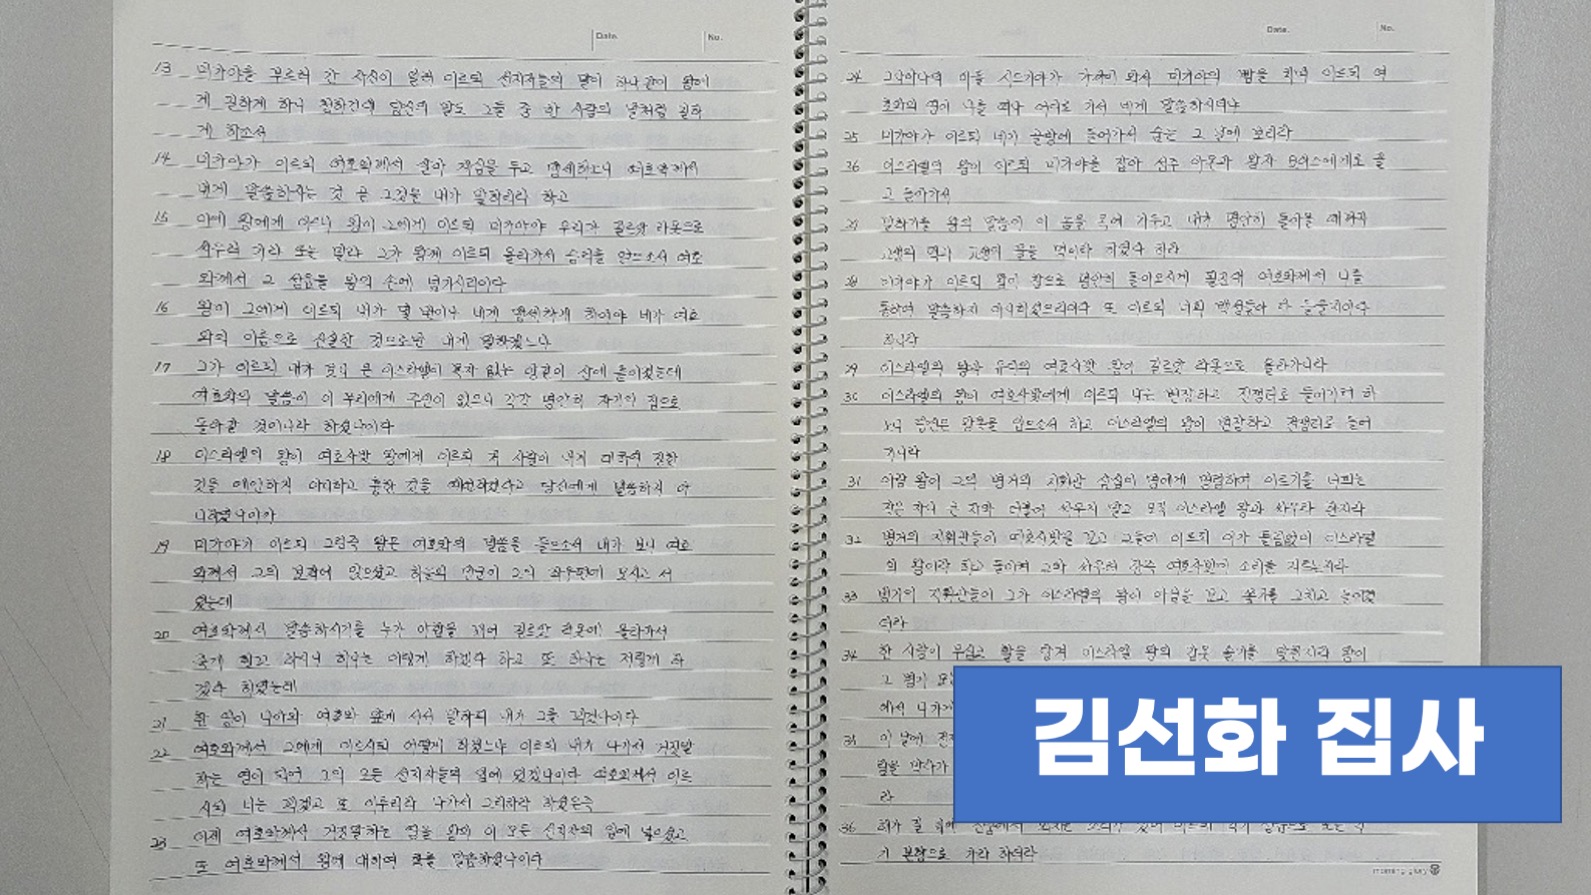 Date. No.
13 미가야를 부르러 간 사신이 일러 이르되 선지자들의 말이 하나같이 왕에
게 길하게 하니 청하건대 당신의 말도 그들 중 한 사람의 말처럼 길하
게 하소서
14 미가야가 이르되 여호와께서 살아 계심을 두고 맹세하노니 여호와께서
내게 말씀하시는 것 곧 그것을 내가 말하리라 하고
15 이에 왕에게 이르니 왕이 그에게 이르되 미가야야 우리가 길르앗 라못으로
싸우러 가랴 또는 말랴 그가 왕께 이르되 올라가서 승리를 얻으소서 여호
와께서 그 성읍을 왕의 손에 넘기시리이다
16 왕이 그에게 이르되 내가 몇 번이나 네게 맹세하게 하여야 네가 여호
와의 이름으로 진실한 것으로만 내게 말하겠느냐
17 그가 이르되 내가 보니 온 이스라엘이 목자 없는 양같이 산에 흩어졌는데
여호와의 말씀이 이 무리에게 주인이 없으니 각각 평안히 자기의 집으로
돌아갈 것이니라 하셨나이다
18 이스라엘의 왕이 여호사밧 왕에게 이르되 저 사람이 내게 대하여 길한
것을 예언하지 아니하고 흉한 것을 예언하겠다고 당신에게 말씀하지 아
니하였나이까
19 미가야가 이르되 그런즉 왕은 여호와의 말씀을 들으소서 내가 보니 여호
와께서 그의 보좌에 앉으셨고 하늘의 만군이 그의 좌우편에 모시고 서
있는데
20 여호와께서 말씀하시기를 누가 아합을 꾀어 길르앗 라못에 올라가서
죽게 할꼬 하시니 하나는 이렇게 하겠다 하고 또 하나는 저렇게 하
겠다 하였는데
21 한 영이 나아와 여호와 앞에 서서 말하되 내가 그를 꾀겠나이다
22 여호와께서 그에게 이르시되 어떻게 하겠느냐 이르되 내가 나가서 거짓말
하는 영이 되어 그의 모든 선지자들의 입에 있겠나이다 여호와께서 이르
시되 너는 꾀겠고 또 이루리라 나가서 그리하라 하셨은즉
23 이제 여호와께서 거짓말하는 영을 왕의 이 모든 선지자의 입에 넣으셨고
또 여호와께서 왕에 대하여 화를 말씀하셨나이다
Date. No.
24 그나아나의 아들 시드기야가 가까이 와서 미가야의 뺨을 치며 이르되 여
호와의 영이 나를 떠나 어디로 가서 네게 말씀하시더냐
25 미가야가 이르되 네가 골방에 들어가서 숨는 그 날에 보리라
26 이스라엘의 왕이 이르되 미가야를 잡아 성주 아몬과 왕자 요아스에게로 끌
고 돌아가서
27 말하기를 왕의 말씀이 이 놈을 옥에 가두고 내가 평안히 돌아올 때까지
고생의 떡과 고생의 물을 먹이라 하였다 하라
28 미가야가 이르되 왕이 참으로 평안히 돌아오시게 될진대 여호와께서 나를
통하여 말씀하지 아니하셨으리이다 또 이르되 너희 백성들아 다 들을지어다
하니라
29 이스라엘의 왕과 유다의 여호사밧 왕이 길르앗 라못으로 올라가니라
30 이스라엘의 왕이 여호사밧에게 이르되 나는 변장하고 전쟁터로 들어가려 하
노니 당신은 왕복을 입으소서 하고 이스라엘의 왕이 변장하고 전쟁터로 들어
가니라
31 아람 왕이 그의 병거의 지휘관 삼십이 명에게 명령하여 이르기를 너희는
작은 자나 큰 자와 더불어 싸우지 말고 오직 이스라엘 왕과 싸우라 한지라
32 병거의 지휘관들이 여호사밧을 보고 그들이 이르되 이가 틀림없이 이스라엘
의 왕이라 하고 돌이켜 그와 싸우려 한즉 여호사밧이 소리를 지르는지라
33 병거의 지휘관들이 그가 이스라엘의 왕이 아님을 보고 쫓기를 그치고 돌이켰
더라
34 한 사람이 무심코 활을 당겨 이스라엘 왕의 갑옷 솔기를 맞힌지라 왕이
그 병거
에서 나가게
35 이 날에
라
36 해가 질 녘에
기 본향으로 가라 하더라
morning glory
김선화 집사